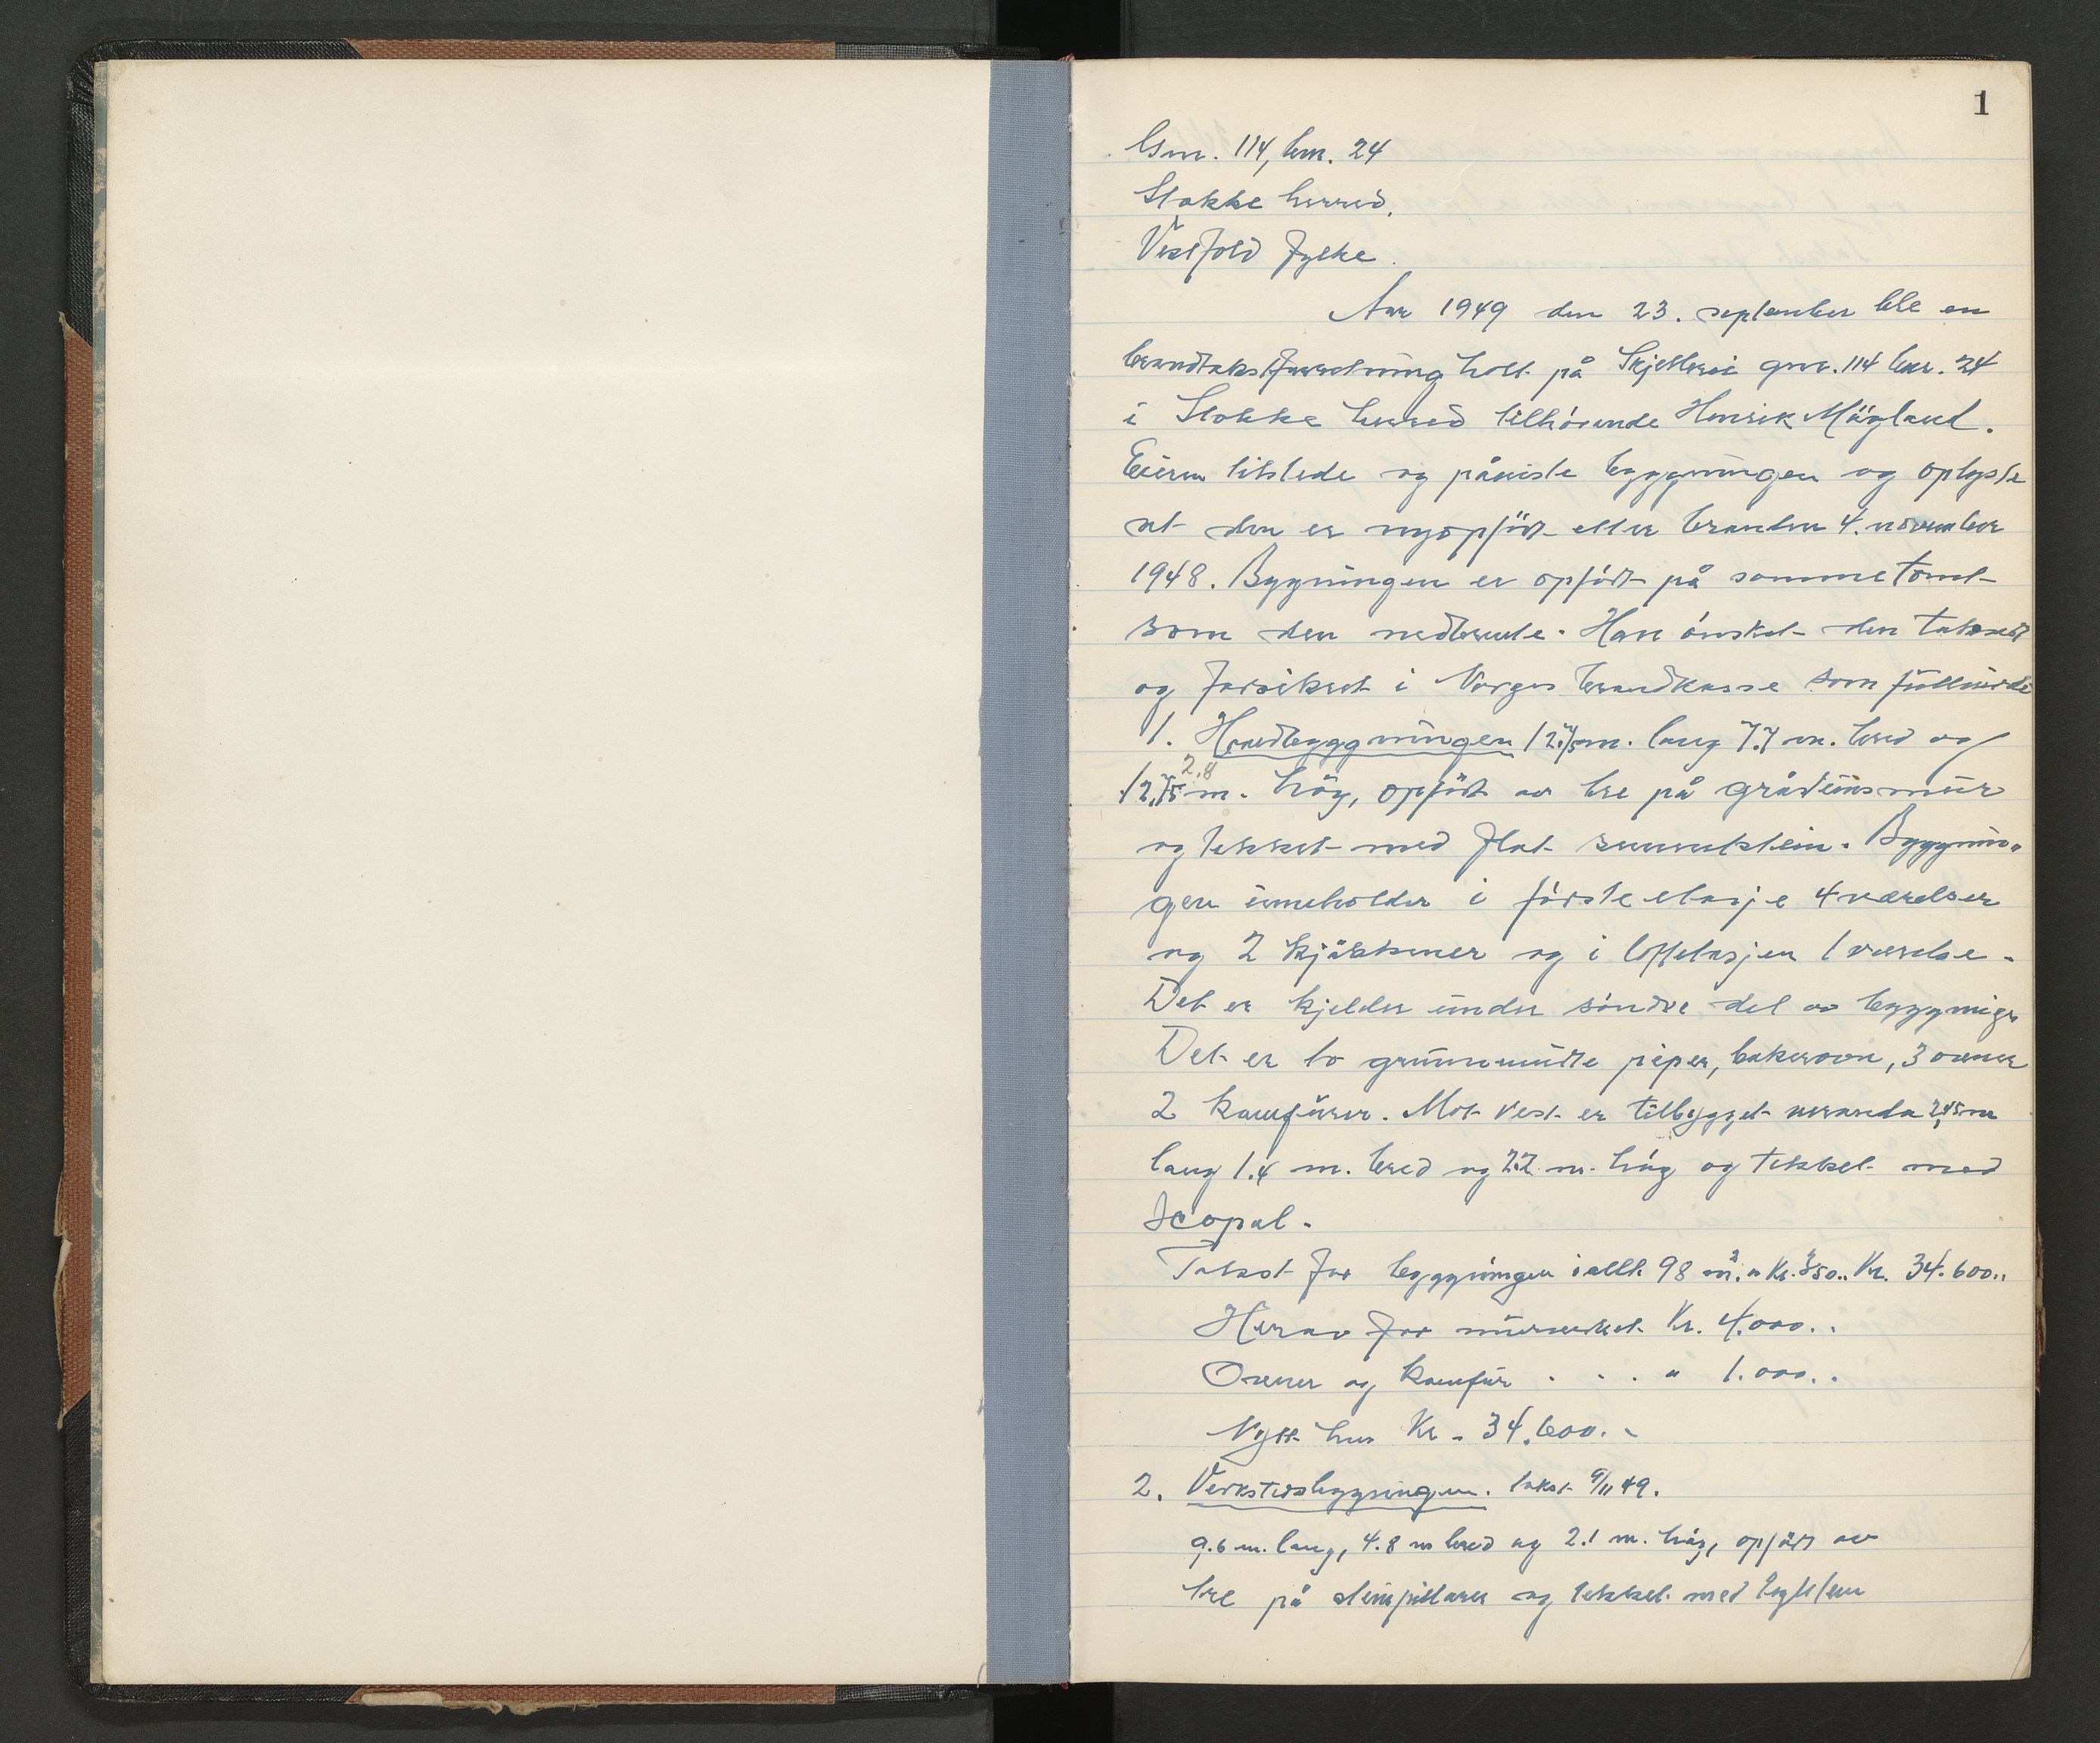 1
Gnr. 114, bnr. 24
Stokke herred.
Vestfold fylke.
Aar 1949 den 23. september ble en
brandtakstforretning holt på gnr. 114 bnr. 24
i Stokke herred tilhörende Henrik Mågland.
Eieren tilstede og påviste byggningen og oplyste
at den er nyopfört etter branden 4. november
1948. Bygningen er opfört på samme tomt
som den nedbrente. Han önsket den taksert
og forsikret i Norges brandkasse som fullverdi
1. Hovedbyggningen 12.75 m. lang 7.7 m. bred og
2.8
12.75 m. hög, opfört av tre på gråsteinsmur
og tekket med flat sementstein. Byggnin-
gen inneholder i förste etasje 4 værelser
og 2 kjökkener og i loftetasjen 1 værelse.
Det er kjelder under söndre del av byggnigen
Det er to grunnmurte piper, bakerovn, 3 ovner
2 komfürer. Mot vest er tilbygget veranda 2,45 m
lang 1.4 m. bred og 2.2 m. hög og tekket med
Icopal.
Takst for byggningen i allt 98 m². a Kr. 350.. Kr. 34.600..
Herav for murverket Kr. 4.000..
Ovner og komfür . . . " 1.000..
Nytt hus Kr. 34.600..
2. Verkstedsbygningen. takst 9/11 49.
9.6 m. lang, 4.8 m bred og 2.1 m. hög, opfört av
tre på steinpillarer og tekket med teglstein